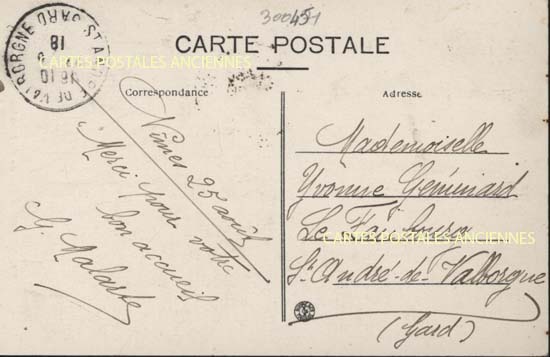 300451
CARTE POSTALE
ST ANDRE DE VALBORGNE GARD
18
18 10
CARTES POSTALES ANCIENNES
Correspondance
Adresse
Nîmes 25 août
Merci pour votre
bon accueil
G. Malarte
Mademoiselle
Yvonne Géminard
Le Faubourg
CARTES POSTALES ANCIENNES
St André-de-Valborgne
(Gard)